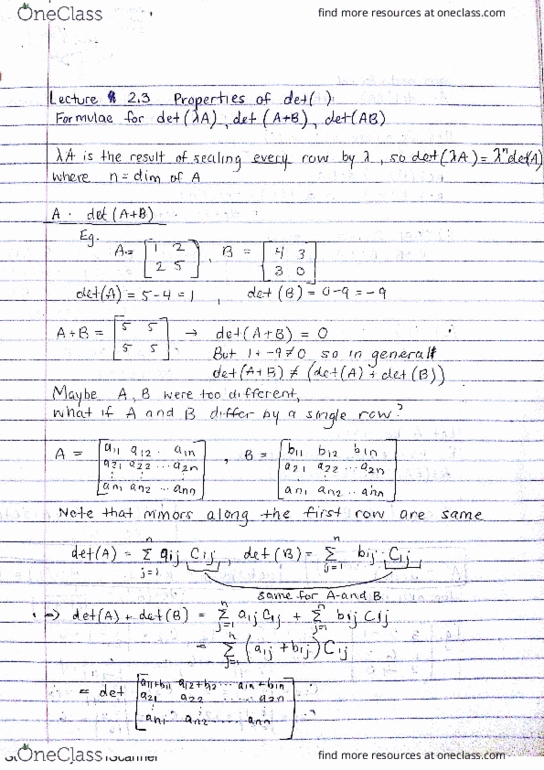 OneClass
find more resources at oneclass.com
Lecture 2.3 Properties of det( )
Formulae for det(λA), det(A+B), det(AB)
λA is the result of scaling every row by λ, so det(λA) = λⁿdet(A)
where n = dim of A
A. det(A+B)
Eg.
A = [1 2; 2 5], B = [4 3; 3 0]
det(A) = 5-4 = 1, det(B) = 0-9 = -9
A+B = [5 5; 5 5]. → det(A+B) = 0
But 1+-9≠0 so in general
det(A+B) ≠ (det(A) + det(B))
Maybe A, B were too different,
what if A and B differ by a single row?
A = [a11 a12 . a1n; a21 a22 ... a2n; ⋮ ⋮ ⋮; an1 an2 ... ann], B = [b11 b12 b1n; a21 a22 ... a2n; an1 an2 ... ann]
Note that minors along the first row are same
det(A) = Σ_{j=1}^{n} a1j C1j, det(B) = Σ_{j=1}^{n} b1j C1j
same for A and B
→ det(A) + det(B) = Σ_{j=1}^{n} a1j C1j + Σ_{j=1}^{n} b1j C1j
= Σ_{j=1}^{n} (a1j + b1j) C1j
= det [a11+b11 a12+b12 ... a1n+b1n; a21 a22 ... a2n; ⋮ ⋮ ⋮; an1 an2 ... ann]
OneClass
Scanner
find more resources at oneclass.com